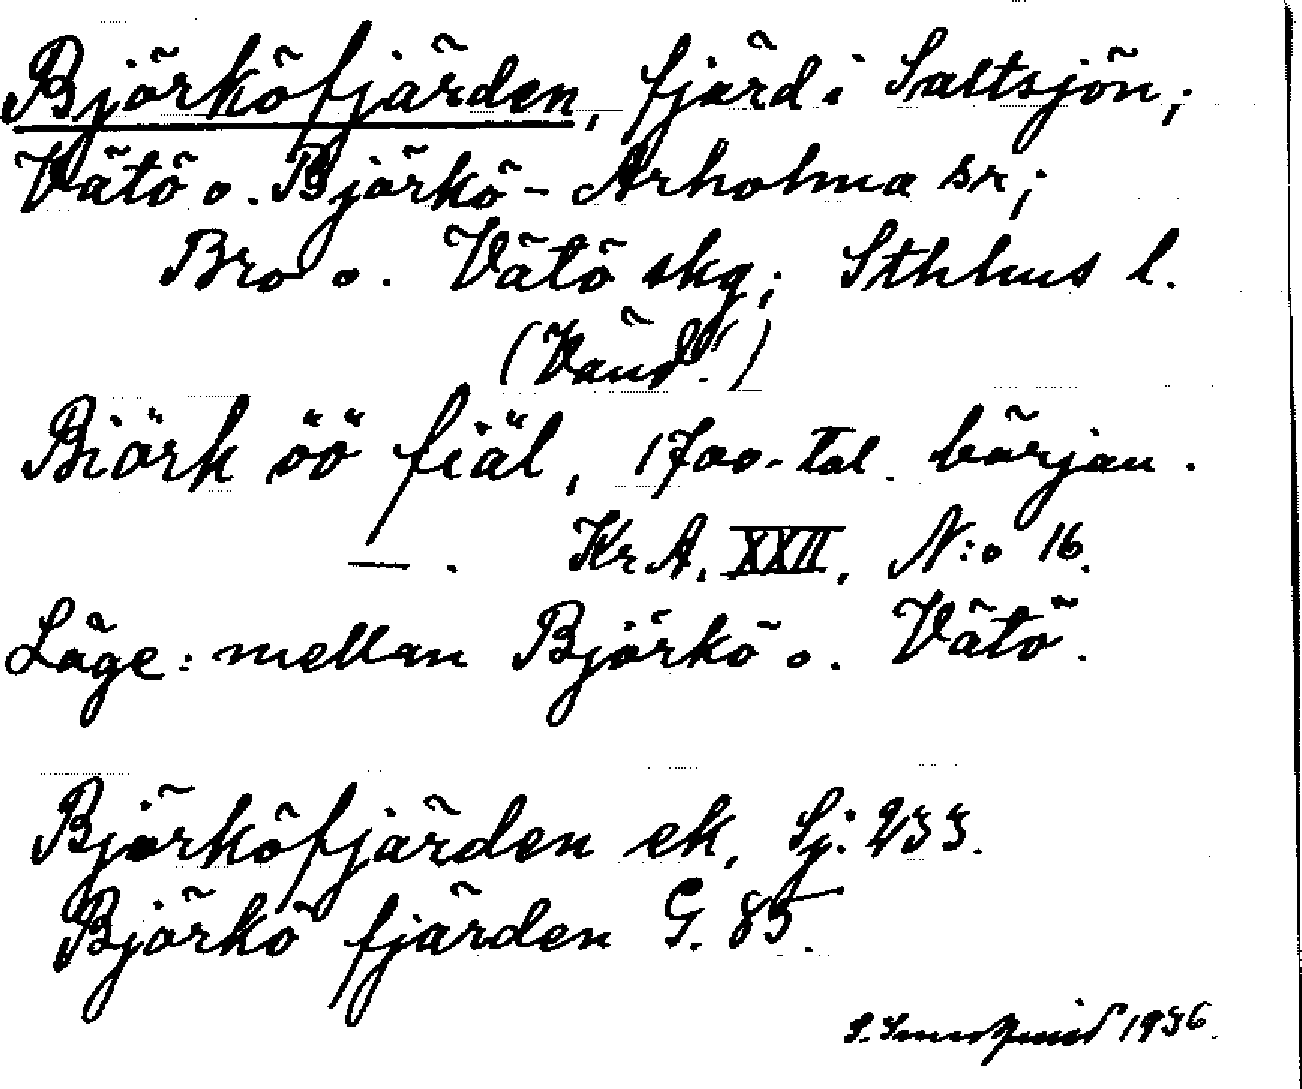 Björköfjärden, fjärd i Saltsjön;
Vätö o. Björkö-Arholma sn;
Bro o. Vätö skg; Sthlms l.
(Vänd!)
Biörk öö fiäl, 1700-tal. början.
— . Kr A. XXII, N:o 16.
Läge: mellan Björkö o. Vätö.
Björköfjärden ek. Sj: 233.
Björkö fjärden G. 85.
1936.